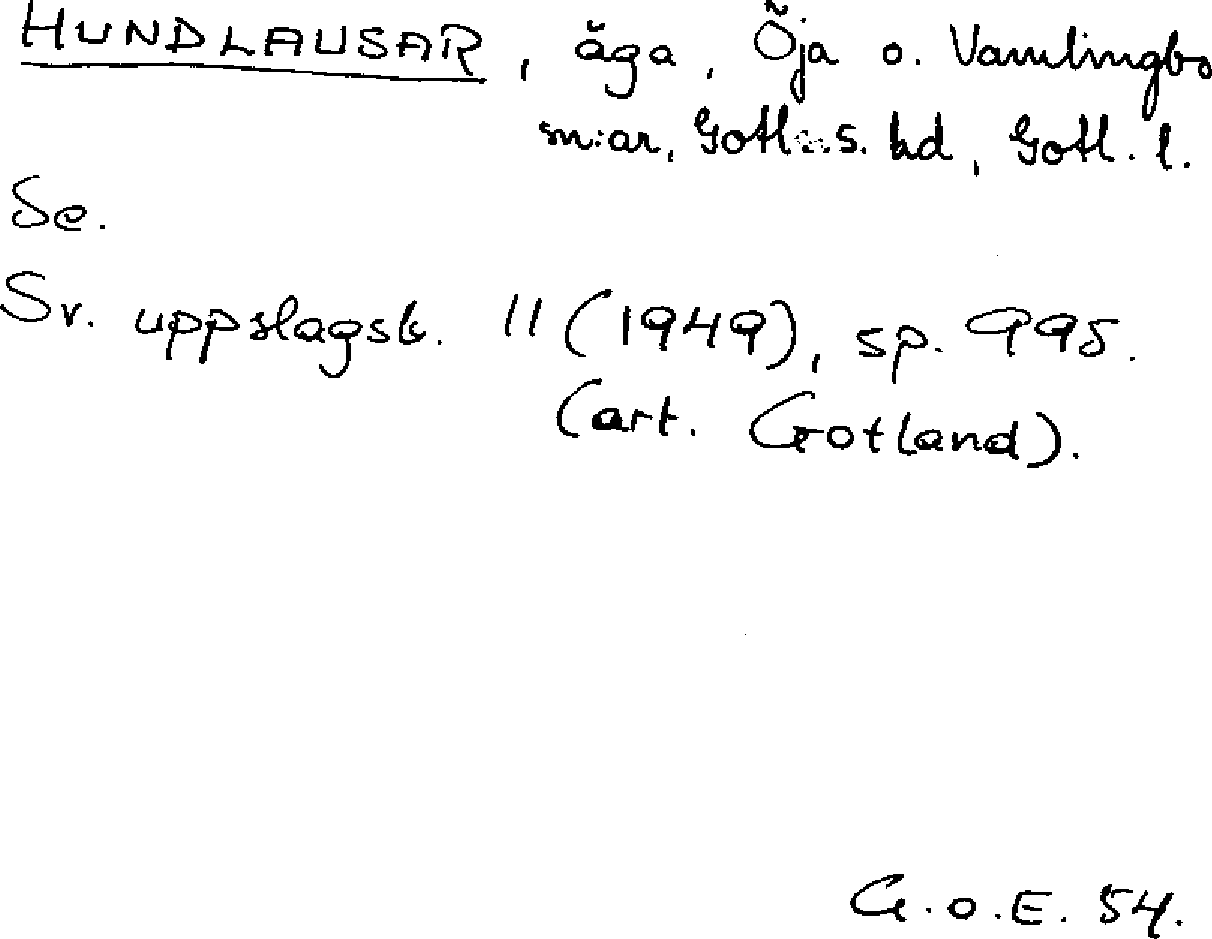 HUNDLAUSAR, äga, Öja o. Vamlingbo
sn:ar, Gotl. s. hd, Gotl. l.
Se.
Sv. uppslagsb. 11 (1949), sp. 995.
(art. Gotland).
G.o.E. 54.